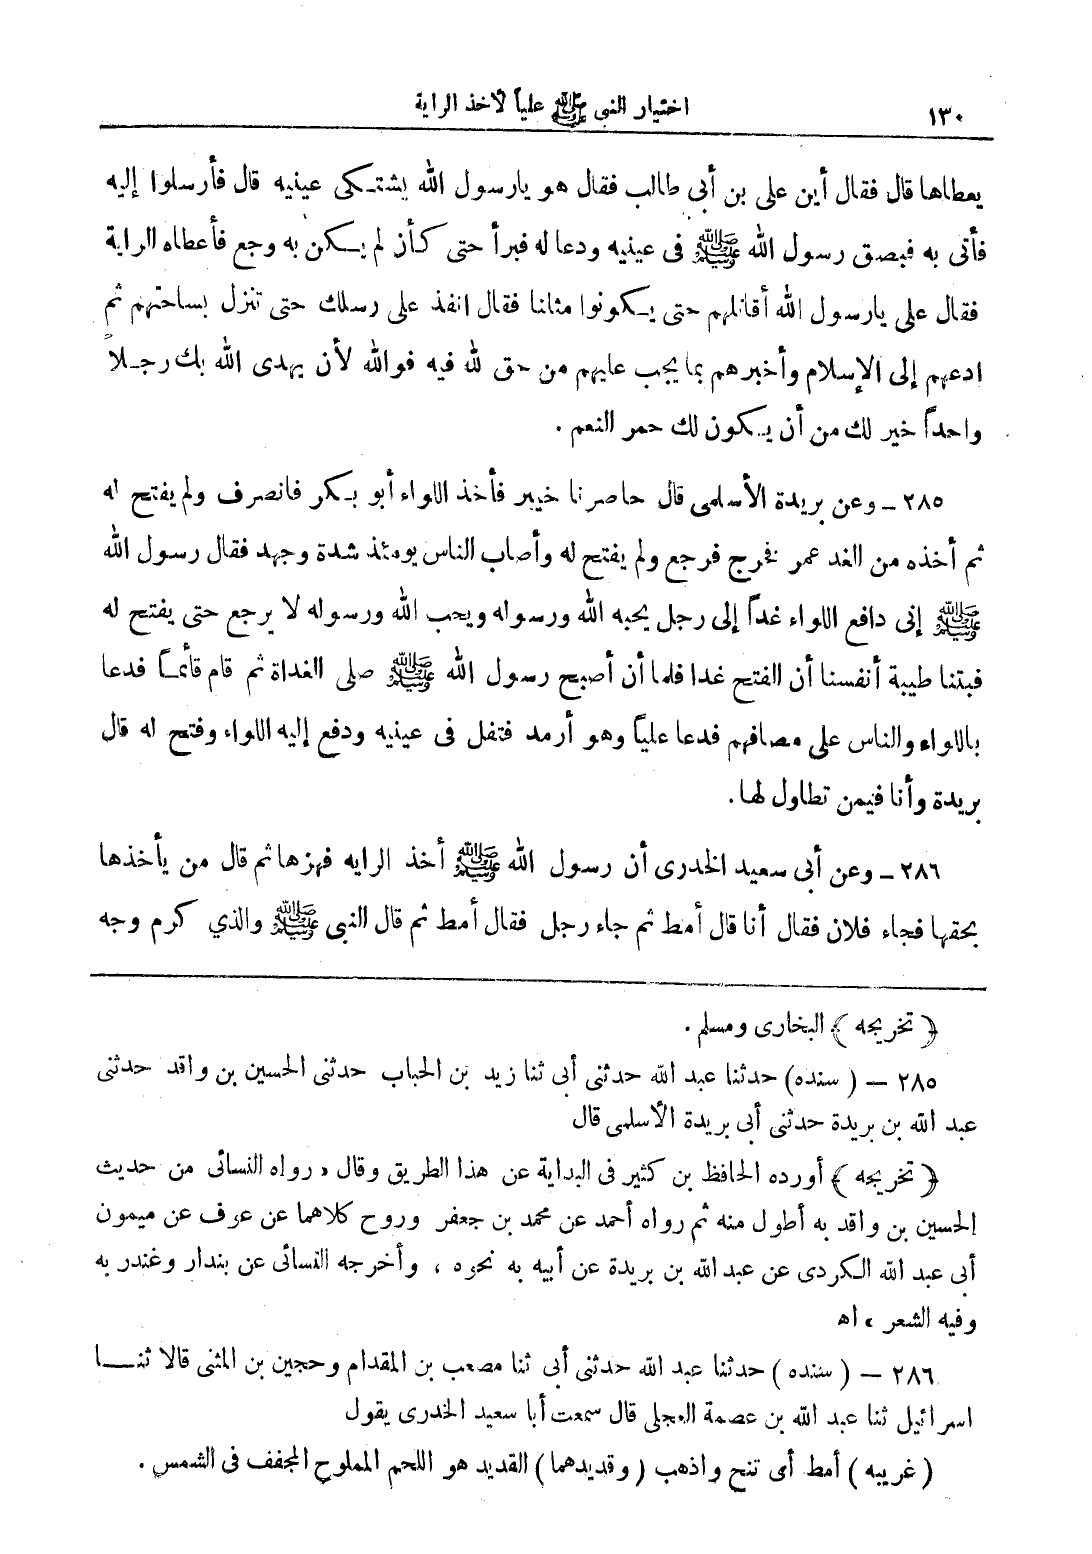 ١٣٠
اختيار النبى ﷺ علياً لأخذ الراية
يعطاها قال فقال أين على بن أبى طالب فقال هو يارسول الله يشتكى عينيه قال فأرسلوا إليه
فأتى به فبصق رسول الله ﷺ فى عينيه ودعا له فبرأ حتى كأن لم يكن به وجع فأعطاه الراية
فقال على يارسول الله أقاتلهم حتى يكونوا مثلنا فقال انفذ على رسلك حتى تنزل بساحتهم ثم
ادعهم إلى الإسلام وأخبرهم بما يجب عليهم من حق لله فيه فوالله لأن يهدى الله بك رجلاً
واحداً خير لك من أن يكون لك حمر النعم .
٢٨٥ - وعن بريدة الأسلمى قال حاصرنا خيبر فأخذ اللواء أبو بكر فانصرف ولم يفتح له
ثم أخذه من الغد عمر فخرج فرجع ولم يفتح له وأصاب الناس يومئذ شدة وجهد فقال رسول الله
ﷺ إنى دافع اللواء غداً إلى رجل يحبه الله ورسوله ويحب الله ورسوله لا يرجع حتى يفتح له
فبتنا طيبة أنفسنا أن الفتح غدا فلما أن أصبح رسول الله ﷺ صلى الغداة ثم قام قائماً فدعا
باللواء والناس على مصافهم فدعا علياً وهو أرمد فتفل فى عينيه ودفع إليه اللواء وفتح له قال
بريدة وأنا فيمن تطاول لها .
٢٨٦ - وعن أبى سعيد الخدرى أن رسول الله ﷺ أخذ الرايه فهزها ثم قال من يأخذها
بحقها فجاء فلان فقال أنا قال أمط ثم جاء رجل فقال أمط ثم قال النبى ﷺ والذي كرم وجه
﴿ تخريجه ﴾ البخارى ومسلم .
٢٨٥ - ( سنده ) حدثنا عبد الله حدثنى أبى ثنا زيد بن الحباب حدثنى الحسين بن واقد حدثنى
عبد الله بن بريدة حدثنى أبى بريدة الأسلمى قال
﴿ تخريجه ﴾ أورده الحافظ بن كثير فى البداية عن هذا الطريق وقال « رواه النسائى من حديث
الحسين بن واقد به أطول منه ثم رواه أحمد عن محمد بن جعفر وروح كلاهما عن عوف عن ميمون
أبى عبد الله الكردى عن عبد الله بن بريدة عن أبيه به نحوه ، وأخرجه النسائى عن بندار وغندر به
وفيه الشعر » اه
٢٨٦ - ( سنده ) حدثنا عبد الله حدثنى أبى ثنا مصعب بن المقدام وحجين بن المثنى قالا ثنا
اسرائيل ثنا عبد الله بن عصمة العجلى قال سمعت أبا سعيد الخدرى يقول
( غريبه ) أمط أى تنح واذهب ( وقديدهما ) القديد هو اللحم المملوح المجفف فى الشمس .